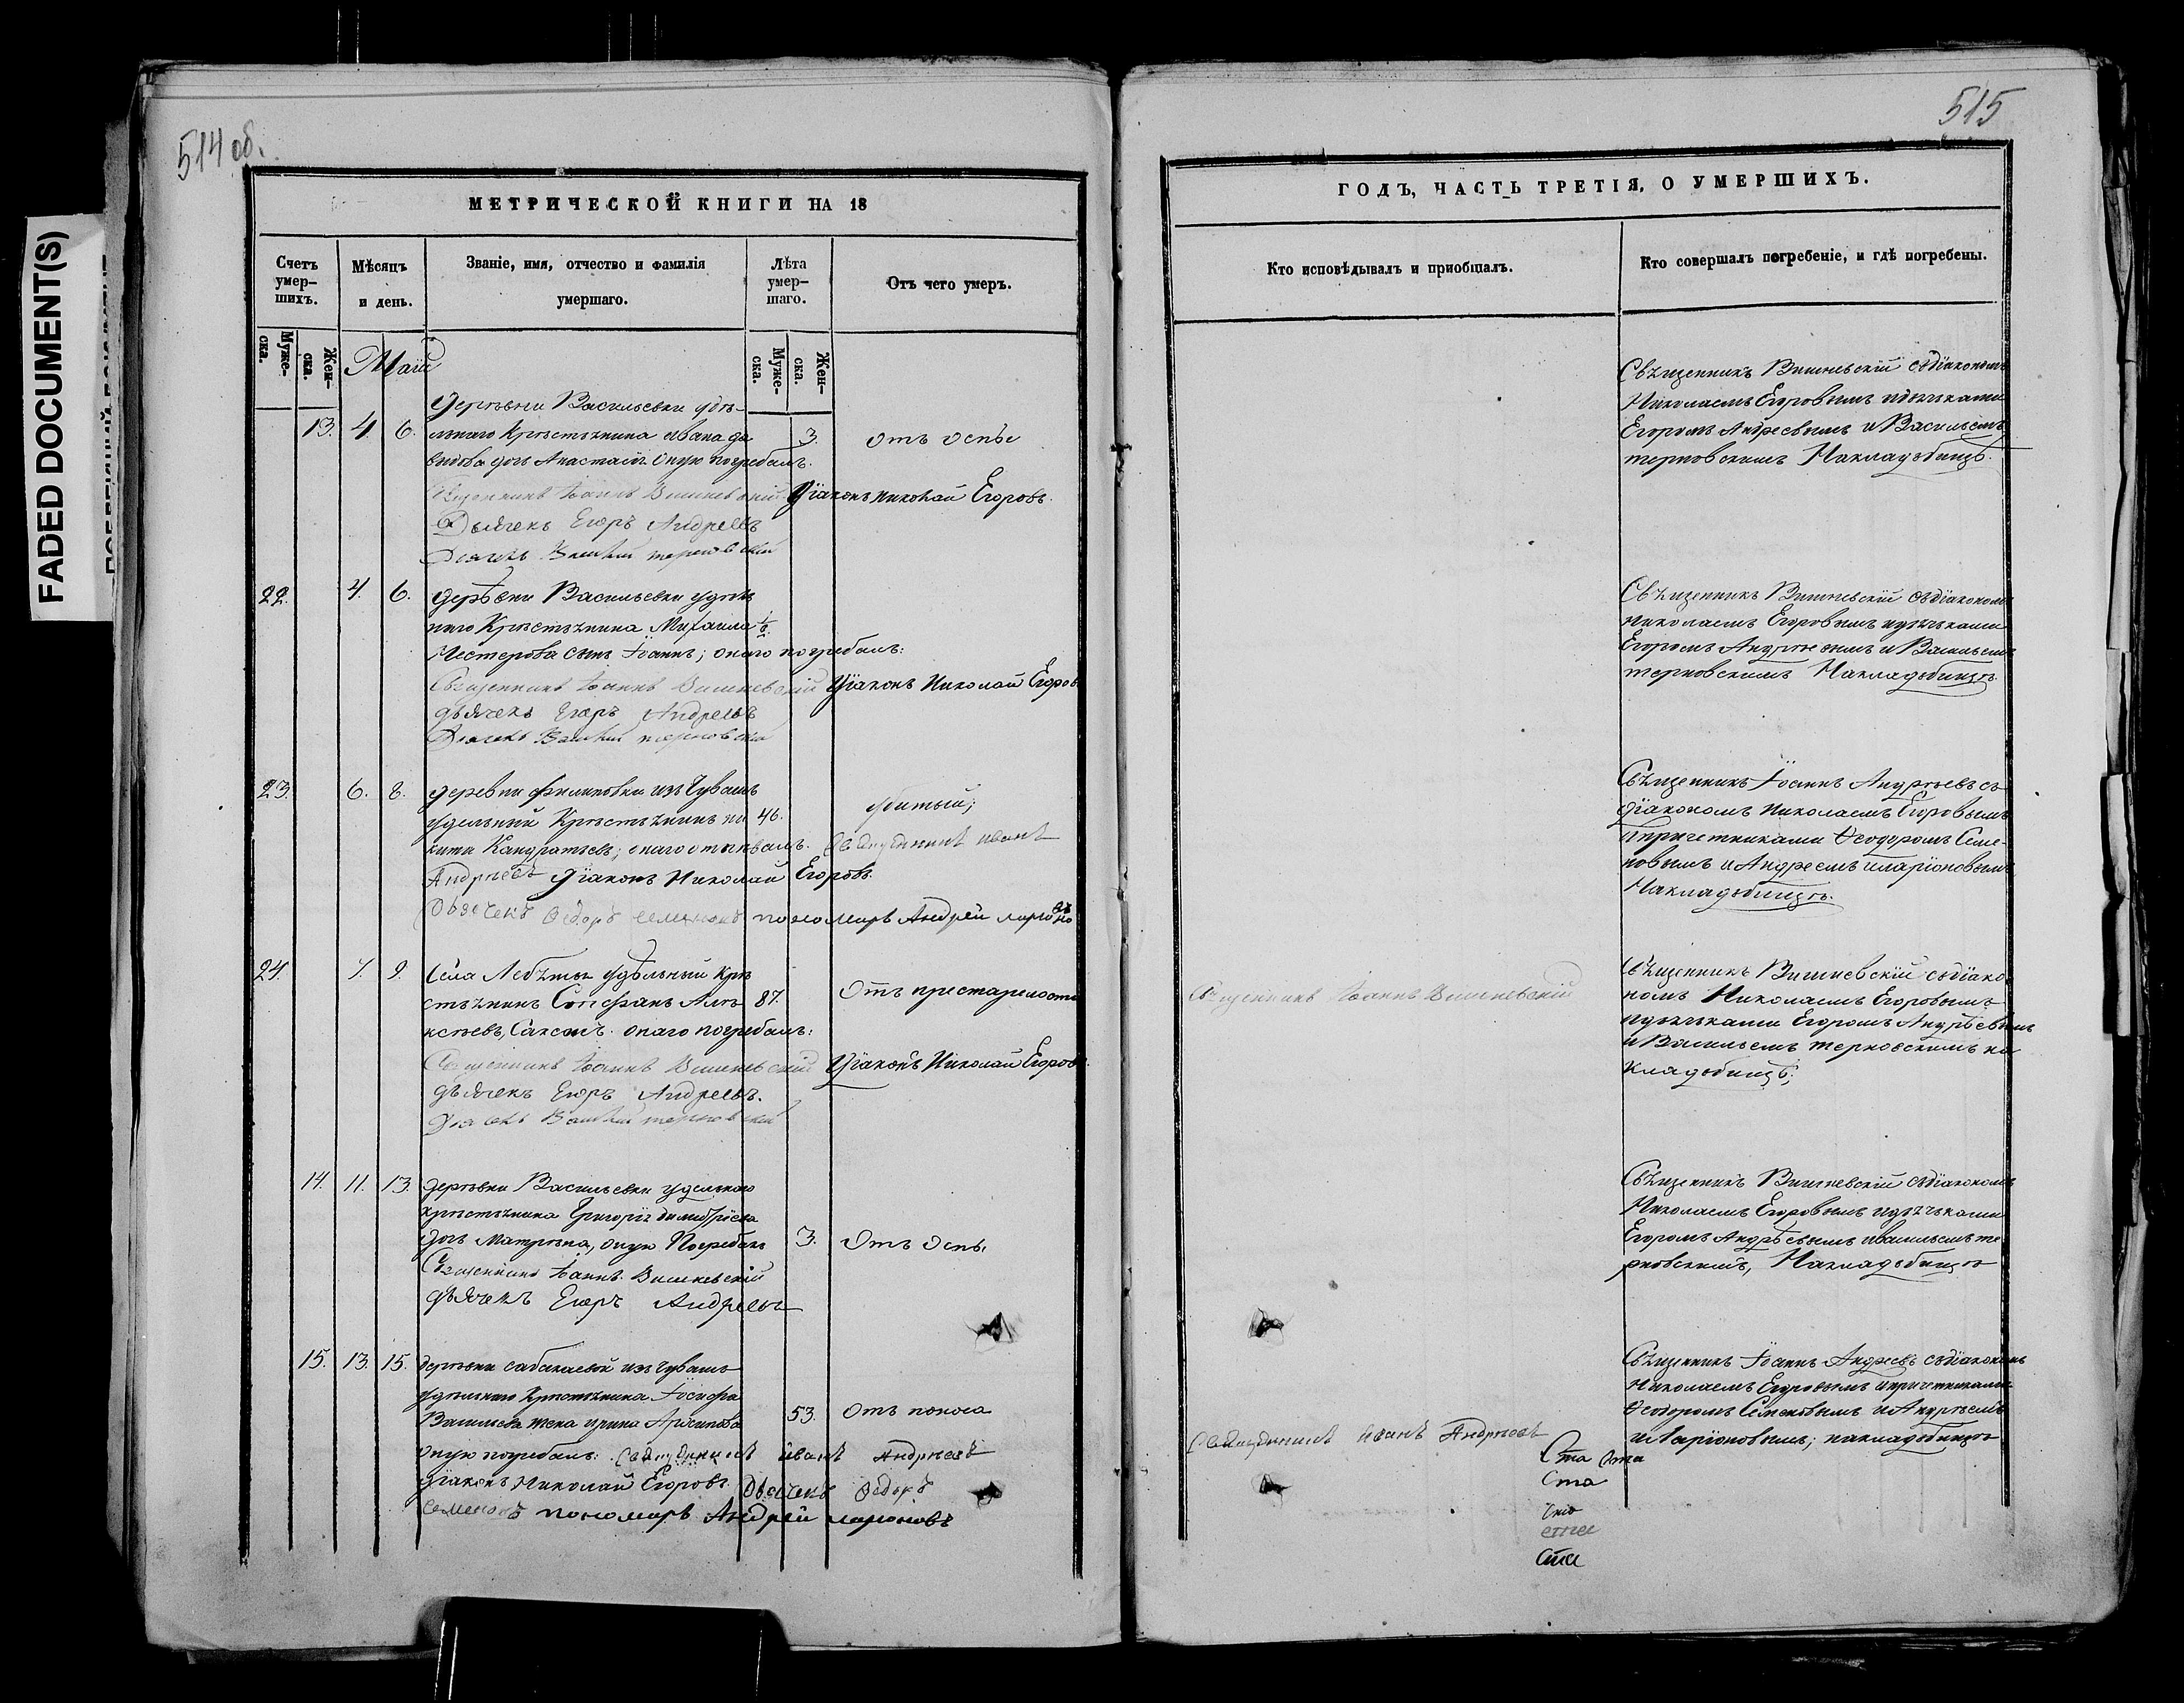 FADED DOCUMENT(S)
514 об.
МЕТРИЧЕСКОЙ КНИГИ НА 18
Счетъ умер-шихъ.
Мѣсяцъ и день.
Званіе, имя, отчество и фамилія умершаго.
Лѣта умер-шаго.
Отъ чего умеръ.
Муже-ска.
Жен-ска.
Маій
Муже-ска.
Жен-ска.
деревни Васильевки удѣ-
13. 4. 6. льнаго Крестьянина Ивана Да 3. отъ оспы
видова дочь Анастасія. Оную погребалъ:
Священникъ Іоаннъ Вишневскій Діаконъ Николай Егоровъ.
Дьячекъ Егоръ Андреевъ
Дьячекъ Василій терновскій
22. 4. 6. деревни Васильевки удѣль
наго Крестьянина Михаила
Нестерова сынъ Іоаннъ; онаго погребалъ:
Священникъ Іоаннъ Вишневскій Діаконъ Николай Егоровъ
дьячекъ Егоръ Андреевъ
Дьячекъ Василій терновскій
23. 6. 8. деревни Филиповки изъ Чувашъ убитый;
удельный Крестьянинъ Ни 46.
кита Кандратьевъ; онаго отпевалъ. Священникъ иванъ
Андреевъ Діаконъ Николай Егоровъ.
Дьячекъ Ѳедоръ семеновъ пономарь Андрей ларионовъ
24. 7. 9. Села Лебѣжы удѣльный кре
стьянинъ Стефанъ Але 87. Отъ престарелости
ксѣевъ, Саксонъ. онаго погребалъ:
Священникъ Іоаннъ Вишневскій Діаконъ Николай Егоровъ.
дьячекъ Егоръ Андреевъ.
Дьячекъ Василій терновскій
14. 11. 13. деревни Васильевки удельнаго
крестьянина Григорія димитріева
дочь Матрена, оную Погребалъ 3. Отъ Оспы
Священникъ Іоаннъ Вишневскій
дьячекъ Егоръ Андреевъ
15. 13. 15. деревни сабакаевой изъ Чувашъ
удельнаго Крестьянина Іосифа
Васильева жена ирина Архипова 53. Отъ поноса
оную погребалъ: Священникъ иванъ Андреевъ
діаконъ Николай Егоровъ. Дьячекъ Ѳедоръ
семеновъ пономарь Андрей ларионовъ
515
ГОДЪ, ЧАСТЬ ТРЕТІЯ, О УМЕРШИХЪ.
Кто исповѣдывалъ и приобщалъ.
Кто совершалъ погребеніе, и гдѣ погребены.
Священникъ Вишневскій съдіакономъ
Николаемъ Егоровымъ идьячками
Егоромъ Андреевымъ и Васильемъ
терновскимъ Накладбищѣ.
Священникъ Вишневскій съдіакономъ
николаемъ Егоровымъ идьячками
Егоромъ Андреевымъ и Васильемъ
терновскимъ Накладбищѣ.
Священникъ Іоаннъ Андреевъ съ
діакономъ Николаемъ Егоровымъ
Ипричетниками Ѳеодоромъ Семе-
новымъ и Андреемъ иларіоновымъ
Накладбищѣ.
Священникъ Іоаннъ Вишневскій
Священникъ Вишневскій съдіако-
номъ Николаемъ Егоровымъ
идьячками Егоромъ Андреевымъ
и Васильемъ терновскимъ на
кладбищѣ;
Священникъ Вишневскій съдіакономъ
Николаемъ Егоровымъ идьячками
Егоромъ Андреевымъ иВасильемъ те
рновскимъ, Накладбищѣ
Священникъ Іоаннъ Андреевъ съдіакономъ
Николаемъ Егоровымъ ипричетниками
Ѳеодоромъ Семеновымъ и Андреемъ
иларіоновымъ; накладбищѣ
Священникъ иванъ Андреевъ
Ста Ста
Ста